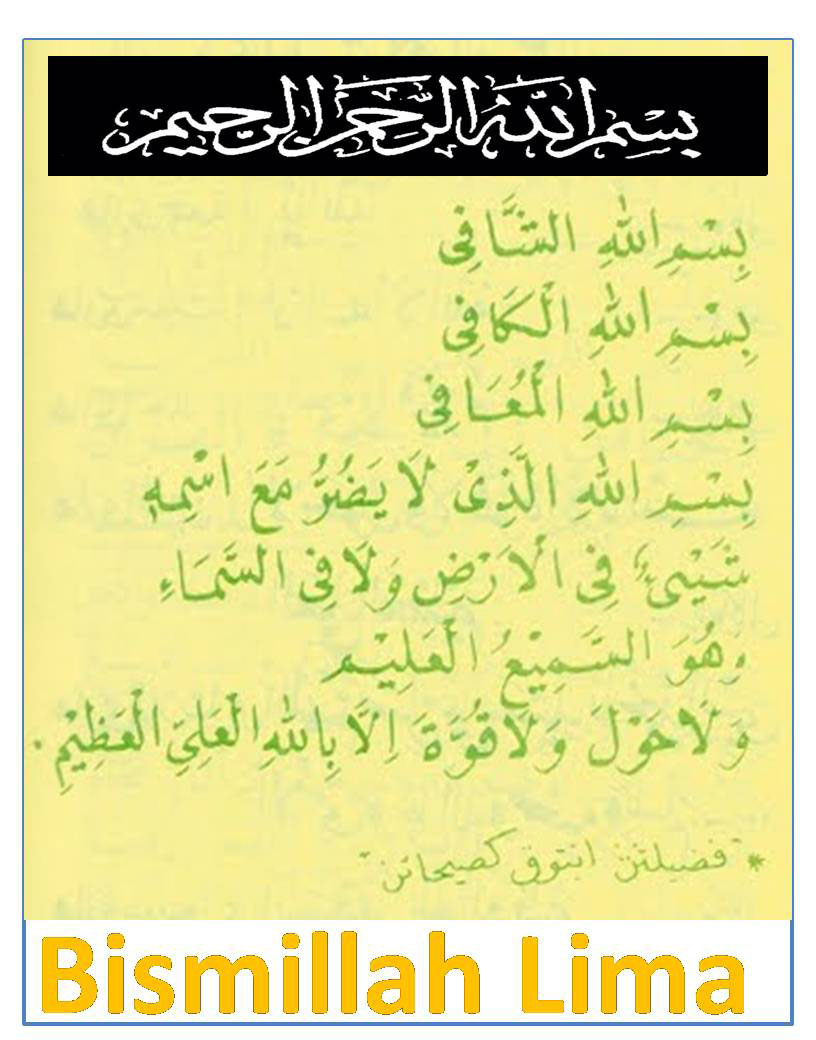 بسم الله الرحمن الرحيم
بِسْمِ اللهِ الشَّافِى
بِسْمِ اللهِ الْكَافِى
بِسْمِ اللهِ الْمُعَافِى
بِسْمِ اللهِ الَّذِىْ لَا يَضُرُّ مَعَ اسْمِهِ
شَيْئٌ فِى الْاَرْضِ وَلَا فِى السَّمَاءِ
وَهُوَ السَّمِيْعُ الْعَلِيْم
وَلَا حَوْلَ وَلَا قُوَّةَ اِلَّا بِاللهِ الْعَلِيِّ الْعَظِيْمِ.
* "فضيلتن انتوق كصيحاتن"
Bismillah Lima